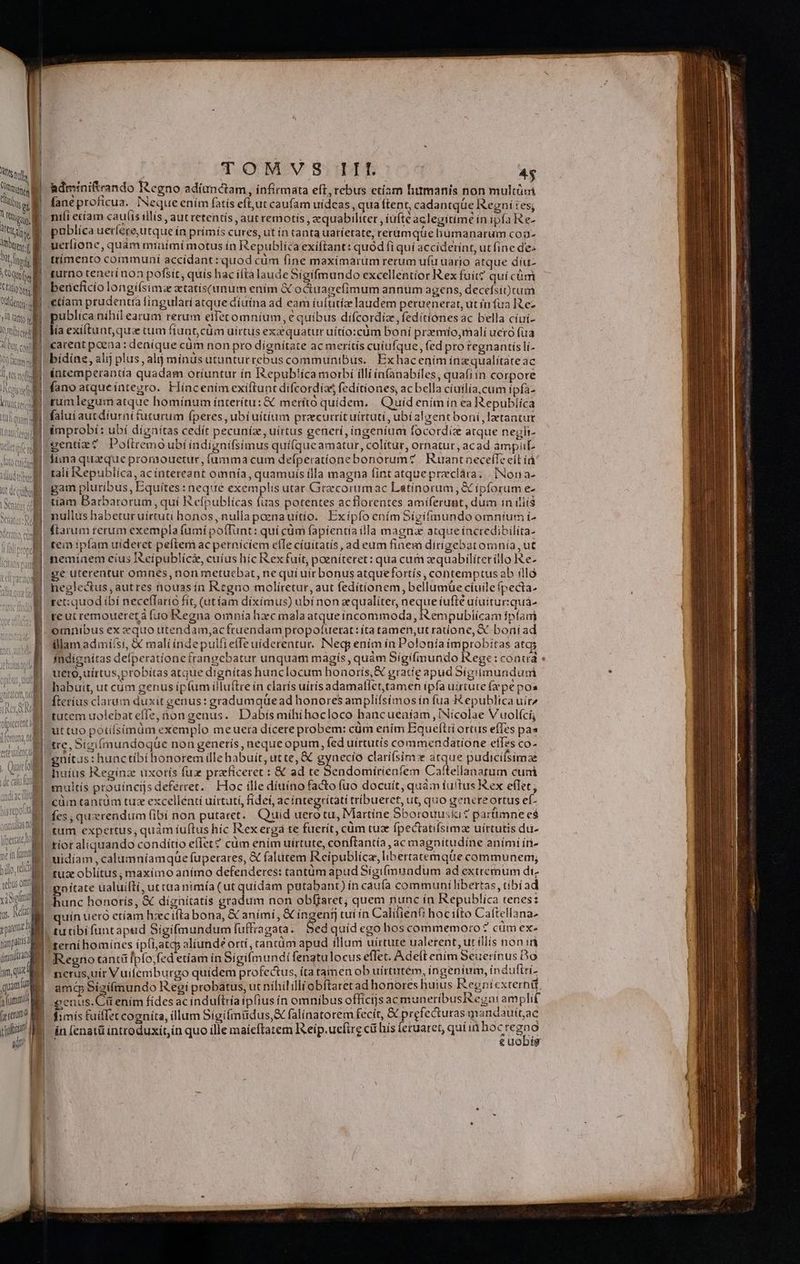 TOMVS III. 45
administrando Regno adiunctam, infirmata est, rebus etiam humanis non multùm
sanè proficua. Neque enim satis est, ut causam uideas, qua stent, cadantq́ue Regni res,
nisi etiam causis illis, aut retentis, aut remotis, æquabiliter, iustè ac legitimè in ipsa Re-
publica uersere, utque in primis cures, ut in tanta uarietate, rerumq́ue humanarum con-
uersione, quàm minimi motus in Republica existant: quòd si qui acciderint, ut sine de-
trimento communi accidant: quod cùm sine maximarum rerum usu uario atque diu-
turno teneri non possit, quis hac ista laude Sigismundo excellentior Rex fuit? qui cùm
beneficio longissimæ ætatis (unum enim & octuagesimum annum agens, decessit) tum
etiam prudentia singulari atque diuina ad eam iustitiæ laudem peruenerat, ut in sua Re-
publica nihil earum rerum esset omnium, è quibus discordiæ, seditiones ac bella ciui-
lia existunt, quæ tum fiunt, cùm uirtus exæquatur uitio: cùm boni præmio, mali uerò sua
careat pœna: denique cùm non pro dignitate ac meritis cuiusque, sed pro regnantis li-
bidine, alij plus, alij minùs utuntur rebus communibus. Ex hac enim inæqualitate ac
intemperantia quadam oriuntur in Republica morbi illi insanabiles, quasi in corpore
sano atque integro. Hinc enim existunt discordiæ, seditiones, ac bella ciuilia, cum ipsa-
rum legum atque hominum interitu: & meritò quidem. Quid enim in ea Republica
salui aut diuturni futurum speres, ubi uitium præcurrit uirtuti, ubi algent boni, lætantur
improbi: ubi dignitas cedit pecuniæ, uirtus generi, ingenium socordiæ atque negli-
gentiæ? Postremò ubi indignissimus quisque amatur, colitur, ornatur, ac ad amplis-
sima quæque promouetur, summa cum desperatione bonorum? Ruant necesse est in
tali Republica, ac intereant omnia, quamuis illa magna sint atque præclara. Non a-
gam pluribus, Equites: neque exemplis utar Græcorum ac Latinorum, & ipsorum e-
tiam Barbarorum, qui Respublicas suas potentes ac florentes amiserunt, dum in illis
nullus habetur uirtuti honos, nulla pœna uitio. Ex ipso enim Sigismundo omnium i-
starum rerum exempla sumi possunt: qui cùm sapientia illa magna atque incredibili ta-
tem ipsam uideret pestem ac perniciem esse ciuitatis, ad eum finem dirigebat omnia, ut
neminem eius Reipublicæ, cuius hic Rex fuit, pœniteret: qua cum æquabiliter illo Re-
ge uterentur omnes, non metuebat, ne qui uir bonus atque fortis, contemptus ab illo
neglectus, aut res nouas in Regno moliretur, aut seditionem, bellumúe ciuile specta-
ret: quod ibi necessario fit, (ut iam diximus) ubi non æqualiter, neque iustè uiuitur: qua-
re ut remoueret à suo Regna omnia hæc mala atque incommoda, Rempublicam ipsam
omnibus ex æquo utendam, ac fruendam proposuerat: ita tamen, ut ratione, & boni ad
illam admissi, & mali inde pulsi esse uiderentur. Neq; enim in Polonia improbitas atq;
indignitas desperatione frangebatur unquam magis, quàm Sigismundo Rege: contrà
uerò, uirtus, probitas atque dignitas hunc locum honoris, & gratiæ apud Sigismundum
habuit, ut cum genus ipsum illustre in claris uiris adamasset, tamen ipsa uirtute sæpe pos
steriùs clarum duxit genus: gradumq́ue ad honores amplissimos in sua Republica uir-
tutem uolebat esse, non genus. Dabis mihi hoc loco hanc ueniam, Nicolae Vuolsci,
ut tuo potissimùm exemplo me uera dicere probem: cùm enim Equestri ortus esses pa-
tre, Sigismundoq́ue non generis, neque opum, sed uirtutis commendatione esses co-
gnitus: hunc tibi honorem ille habuit, ut te, & gynecio clarissimæ atque pudicissimæ
huius Reginæ uxoris suæ præficeret: & ad te Sendomiriensem Castellanatum cum
multis prouincijs deferret. Hoc ille diuino facto suo docuit, quàm iustus Rex esset,
cùm tantùm tuæ excellenti uirtuti, fidei, ac integritati tribueret, ut, quo genere ortus es-
ses, quærendum sibi non putaret. Quid uerò tu, Martine Sborouuski? parùmne es
tum expertus, quàm iustus hic Rex erga te fuerit, cùm tuæ spectatissimæ uirtutis du-
rior aliquando conditio esset? cùm enim uirtute, constantia, ac magnitudine animi in-
uidiam, calumniamq́ue superares, & salutem Reipublicæ, libertatemq́ue communem,
tuæ oblitus, maximo animo defenderes: tantùm apud Sigismundum ad extremum di-
gnitate ualuisti, ut tua nimia (ut quidam putabant) in causa communi libertas, tibi ad
hunc honoris, & dignitatis gradum non obstaret, quem nunc in Republica tenes:
quin uerò etiam hæc ista bona, & animi, & ingenij tui in Calissensi hoc isto Castellana-
tu tibi sunt apud Sigismundum suffragata. Sed quid ego hos commemoro? cùm ex-
terni homines ipsi, atq; aliunde orti, tantùm apud illum uirtute ualerent, ut illis non in
Regno tantū ipso, sed etiam in Sigismundi senatu locus esset. Adest enim Seuerinus Bo
nerus, uir Vuissemburgo quidem profectus, ita tamen ob uirtutem, ingenium, industri-
amq; Sigismundo Regi probatus, ut nihil illi obstaret ad honores huius Regni externū
genus. Cū enim fides ac industria ipsius in omnibus officijs ac muneribus Regni amplis
simis fuisset cognita, illum Sigismūdus, & salinatorem fecit, & præfecturas mandauit, ac
in senatū introduxit, in quo ille maiestatem Reip. uestræ cū his seruaret, qui in hoc regno
è uobis